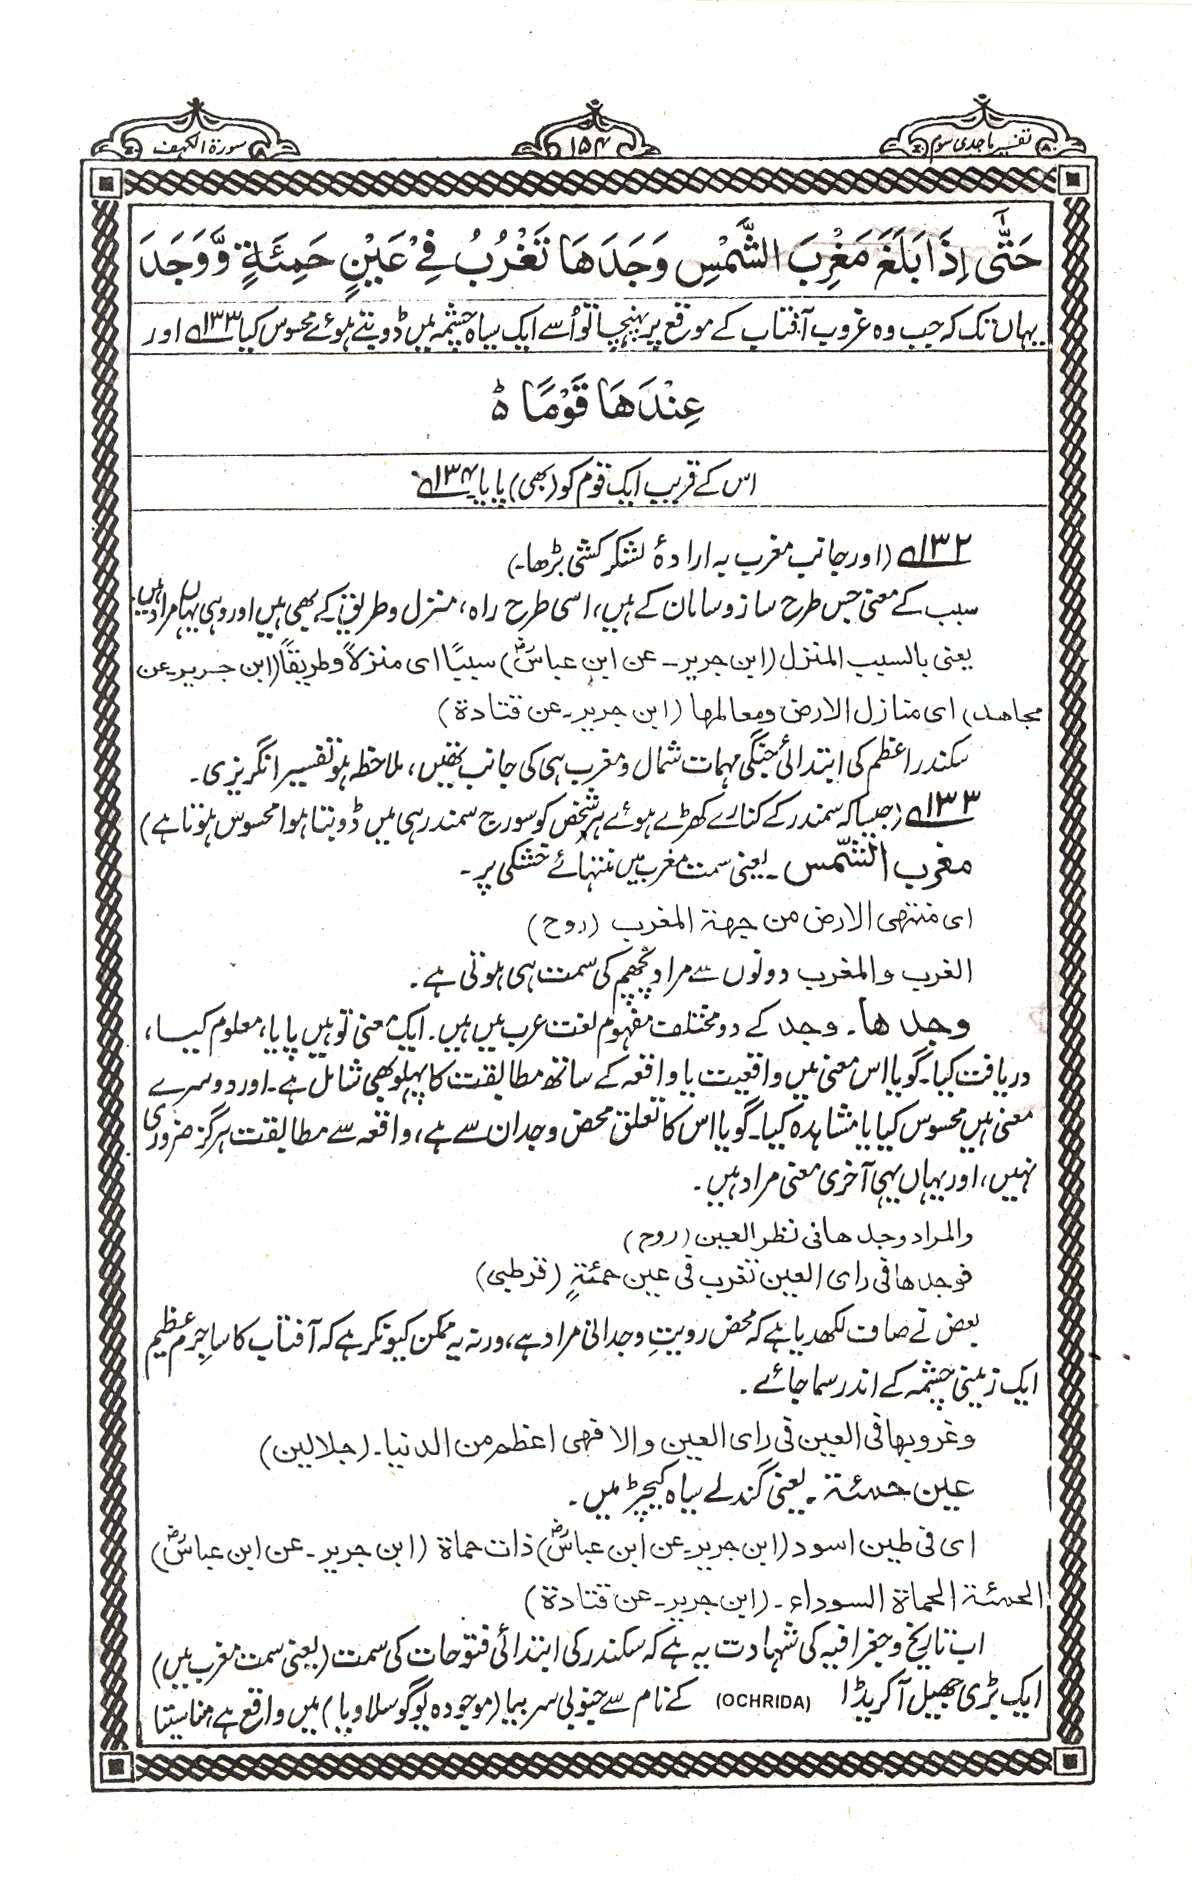 تفسیر ماجدی سوم
۱۵۴
سورۃ الکہف
حَتّٰۤى اِذَا بَلَغَ مَغْرِبَ الشَّمْسِ وَجَدَهَا تَغْرُبُ فِیْ عَیْنٍ حَمِئَةٍ وَّوَجَدَ
یہاں تک کہ جب وہ غروب آفتاب کے موقع پر پہنچا تو اُسے ایک سیاہ چشمہ میں ڈوبتے ہوئے محسوس کیا ۱۳۳ اور
عِنْدَهَا قَوْمًا ؕ
اس کے قریب ایک قوم کو (بھی) پایا ۱۳۴
۱۳۲ (اور جانب مغرب بہ ارادۂ لشکر کشی بڑھا۔)
سبب کے معنی جس طرح ساز و سامان کے ہیں، اسی طرح راہ، منزل و طریق کے بھی ہیں اور وہی یہاں مراد ہیں
یعنی بالسبب المنزل (ابن جریر۔ عن ابن عباسؓ) سبباً ای منزلاً وطریقاً (ابن جریر عن
مجاهد) ای منازل الارض ومعالمها (ابن جریر۔ عن قتادة)
سکندر اعظم کی ابتدائی جنگی مہمات شمال و مغرب ہی کی جانب تھیں، ملاحظہ ہو تفسیر انگریزی۔
۱۳۳ (جیسا کہ سمندر کے کنارے کھڑے ہوئے ہر شخص کو سورج سمندر ہی میں ڈوبتا ہوا محسوس ہوتا ہے)
مغرب الشّمس۔ یعنی سمت مغرب میں منتہائے خشکی پر۔
ای منتهی الارض من جهة المغرب (روح)
الغرب والمغرب دونوں سے مراد پچھم کی سمت ہی ہوتی ہے۔
وجدها۔ وجد کے دو مختلف مفہوم لغت عرب میں ہیں۔ ایک معنی تو ہیں پایا، معلوم کیا،
دریافت کیا۔ گویا اس معنی میں واقعیت یا واقعہ کے ساتھ مطابقت کا پہلو بھی شامل ہے۔ اور دوسرے
معنی ہیں محسوس کیا یا مشاہدہ کیا۔ گویا اس کا تعلق محض وجدان سے ہے، واقعہ سے مطابقت ہرگز ضروری
نہیں، اور یہاں یہی آخری معنی مراد ہیں۔
والمراد وجدها فی نظر العین (روح)
فوجدها فی رای العین تغرب فی عین حمئةٍ (قرطبی)
بعض نے صاف لکھ دیا ہے کہ محض رویتِ وجدانی مراد ہے، ورنہ یہ ممکن کیونکر ہے کہ آفتاب کا سا جرم عظیم
ایک زمینی چشمہ کے اندر سما جائے۔
وغروبها فی العین فی رای العین والا فهی اعظم من الدنیا۔ (جلالین)
عین حمئة۔ یعنی گندلے سیاہ کیچڑ میں۔
ای فی طین اسود (ابن جریر۔ عن ابن عباسؓ) ذات حماة (ابن جریر۔ عن ابن عباسؓ)
الحمئة الحماة السوداء۔ (ابن جریر۔ عن قتادة)
اب تاریخ و جغرافیہ کی شہادت یہ ہے کہ سکندر کی ابتدائی فتوحات کی سمت (یعنی سمت مغرب میں)
ایک بڑی جھیل آکریڈا (OCHRIDA) کے نام سے جنوبی سربیا (موجودہ یوگوسلاویا) میں واقع ہے، مناستا